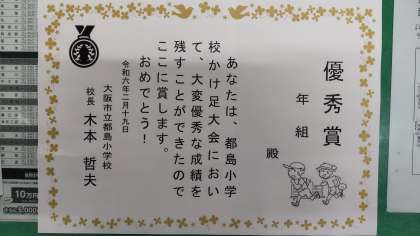 優秀賞
年 組
殿
あなたは、都島小学
校かけ足大会におい
て、大変優秀な成績を
残すことができたので
ここに賞します。
おめでとう！
令和六年二月十九日
大阪市立都島小学校
校長 木本 哲夫
10万円